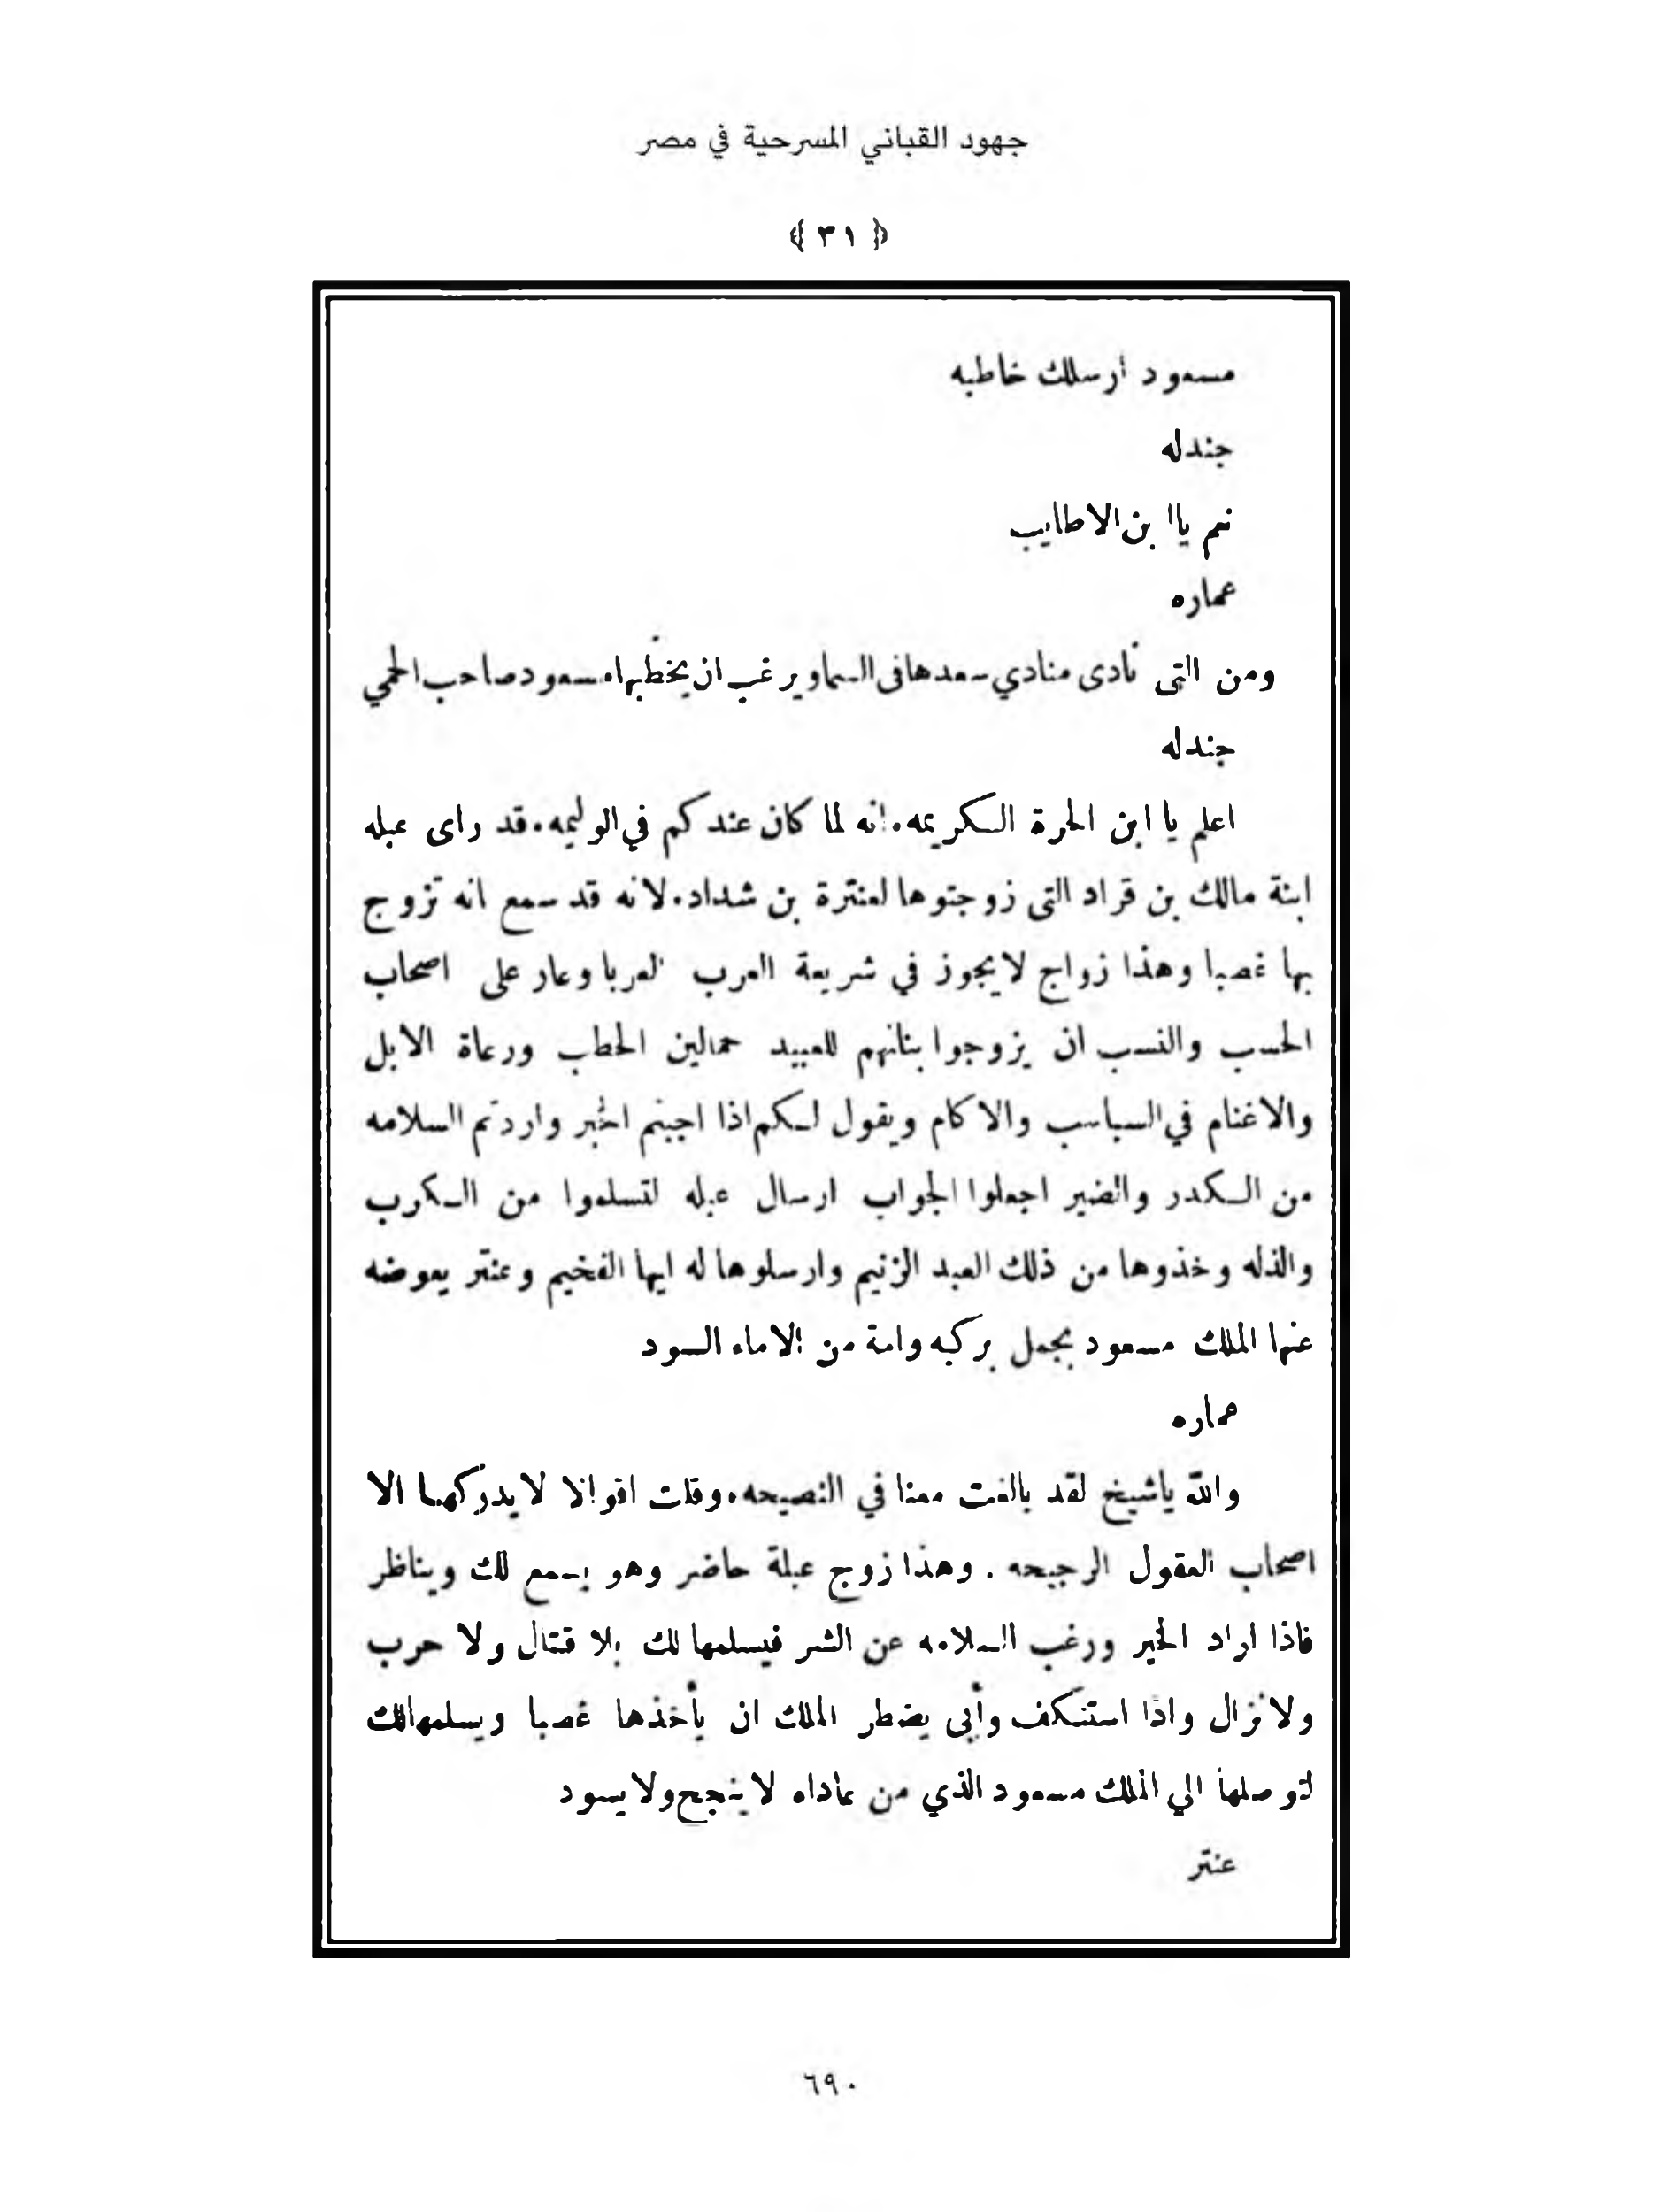 جهود القباني المسرحية في مصر
﴿ ٣١ ﴾
مسعود ارسلك خاطبه
جندله
نعم ياا بن الاطايب
عماره
ومن التى نادى منادي سعدها فى السما ويرغب ان يخطبها مسعود صاحب الحمي
جندله
اعلم يا ابن الحرة الكريمه. انه لما كان عندكم في الوليمه. قد راى عبله
ابنة مالك بن قراد التى زوجتوها لعنترة بن شداد. لانه قد سمع انه تزوج
بها غصبا وهذا زواج لا يجوز في شريعة العرب العربا وعار على اصحاب
الحسب والنسب ان يزوجوا بناتهم للعبيد حمالين الحطب ورعاة الابل
والاغنام في السباسب والاكام ويقول لكم اذا اجبتم الخبر واردتم السلامه
من الكدر والضير اجعلوا الجواب ارسال عبله لتسلموا من الكرب
والذله وخذوها من ذلك العبد الزنيم وارسلوها له ايها الفخيم وعنتر يعوضه
عنها الملك مسعود بجمل يركبه وامة من الاماء السود
عماره
والله ياشيخ لقد بالغت معنا في النصيحه. وقلت اقوالا لا يدركها الا
اصحاب العقول الرجيحه . وهذا زوج عبلة حاضر وهو يسمع لك ويناظر
فاذا اراد الخير ورغب السلامه عن الشر فيسلمها لك بلا قتال ولا حرب
ولا نزال واذا استنكف وأبى يضطر الملك ان يأخذها غصبا ويسلمهالك
لتوصلها الي الملك مسعود الذي من عاداه لا ينجح ولا يسود
عنتر
٦٩٠